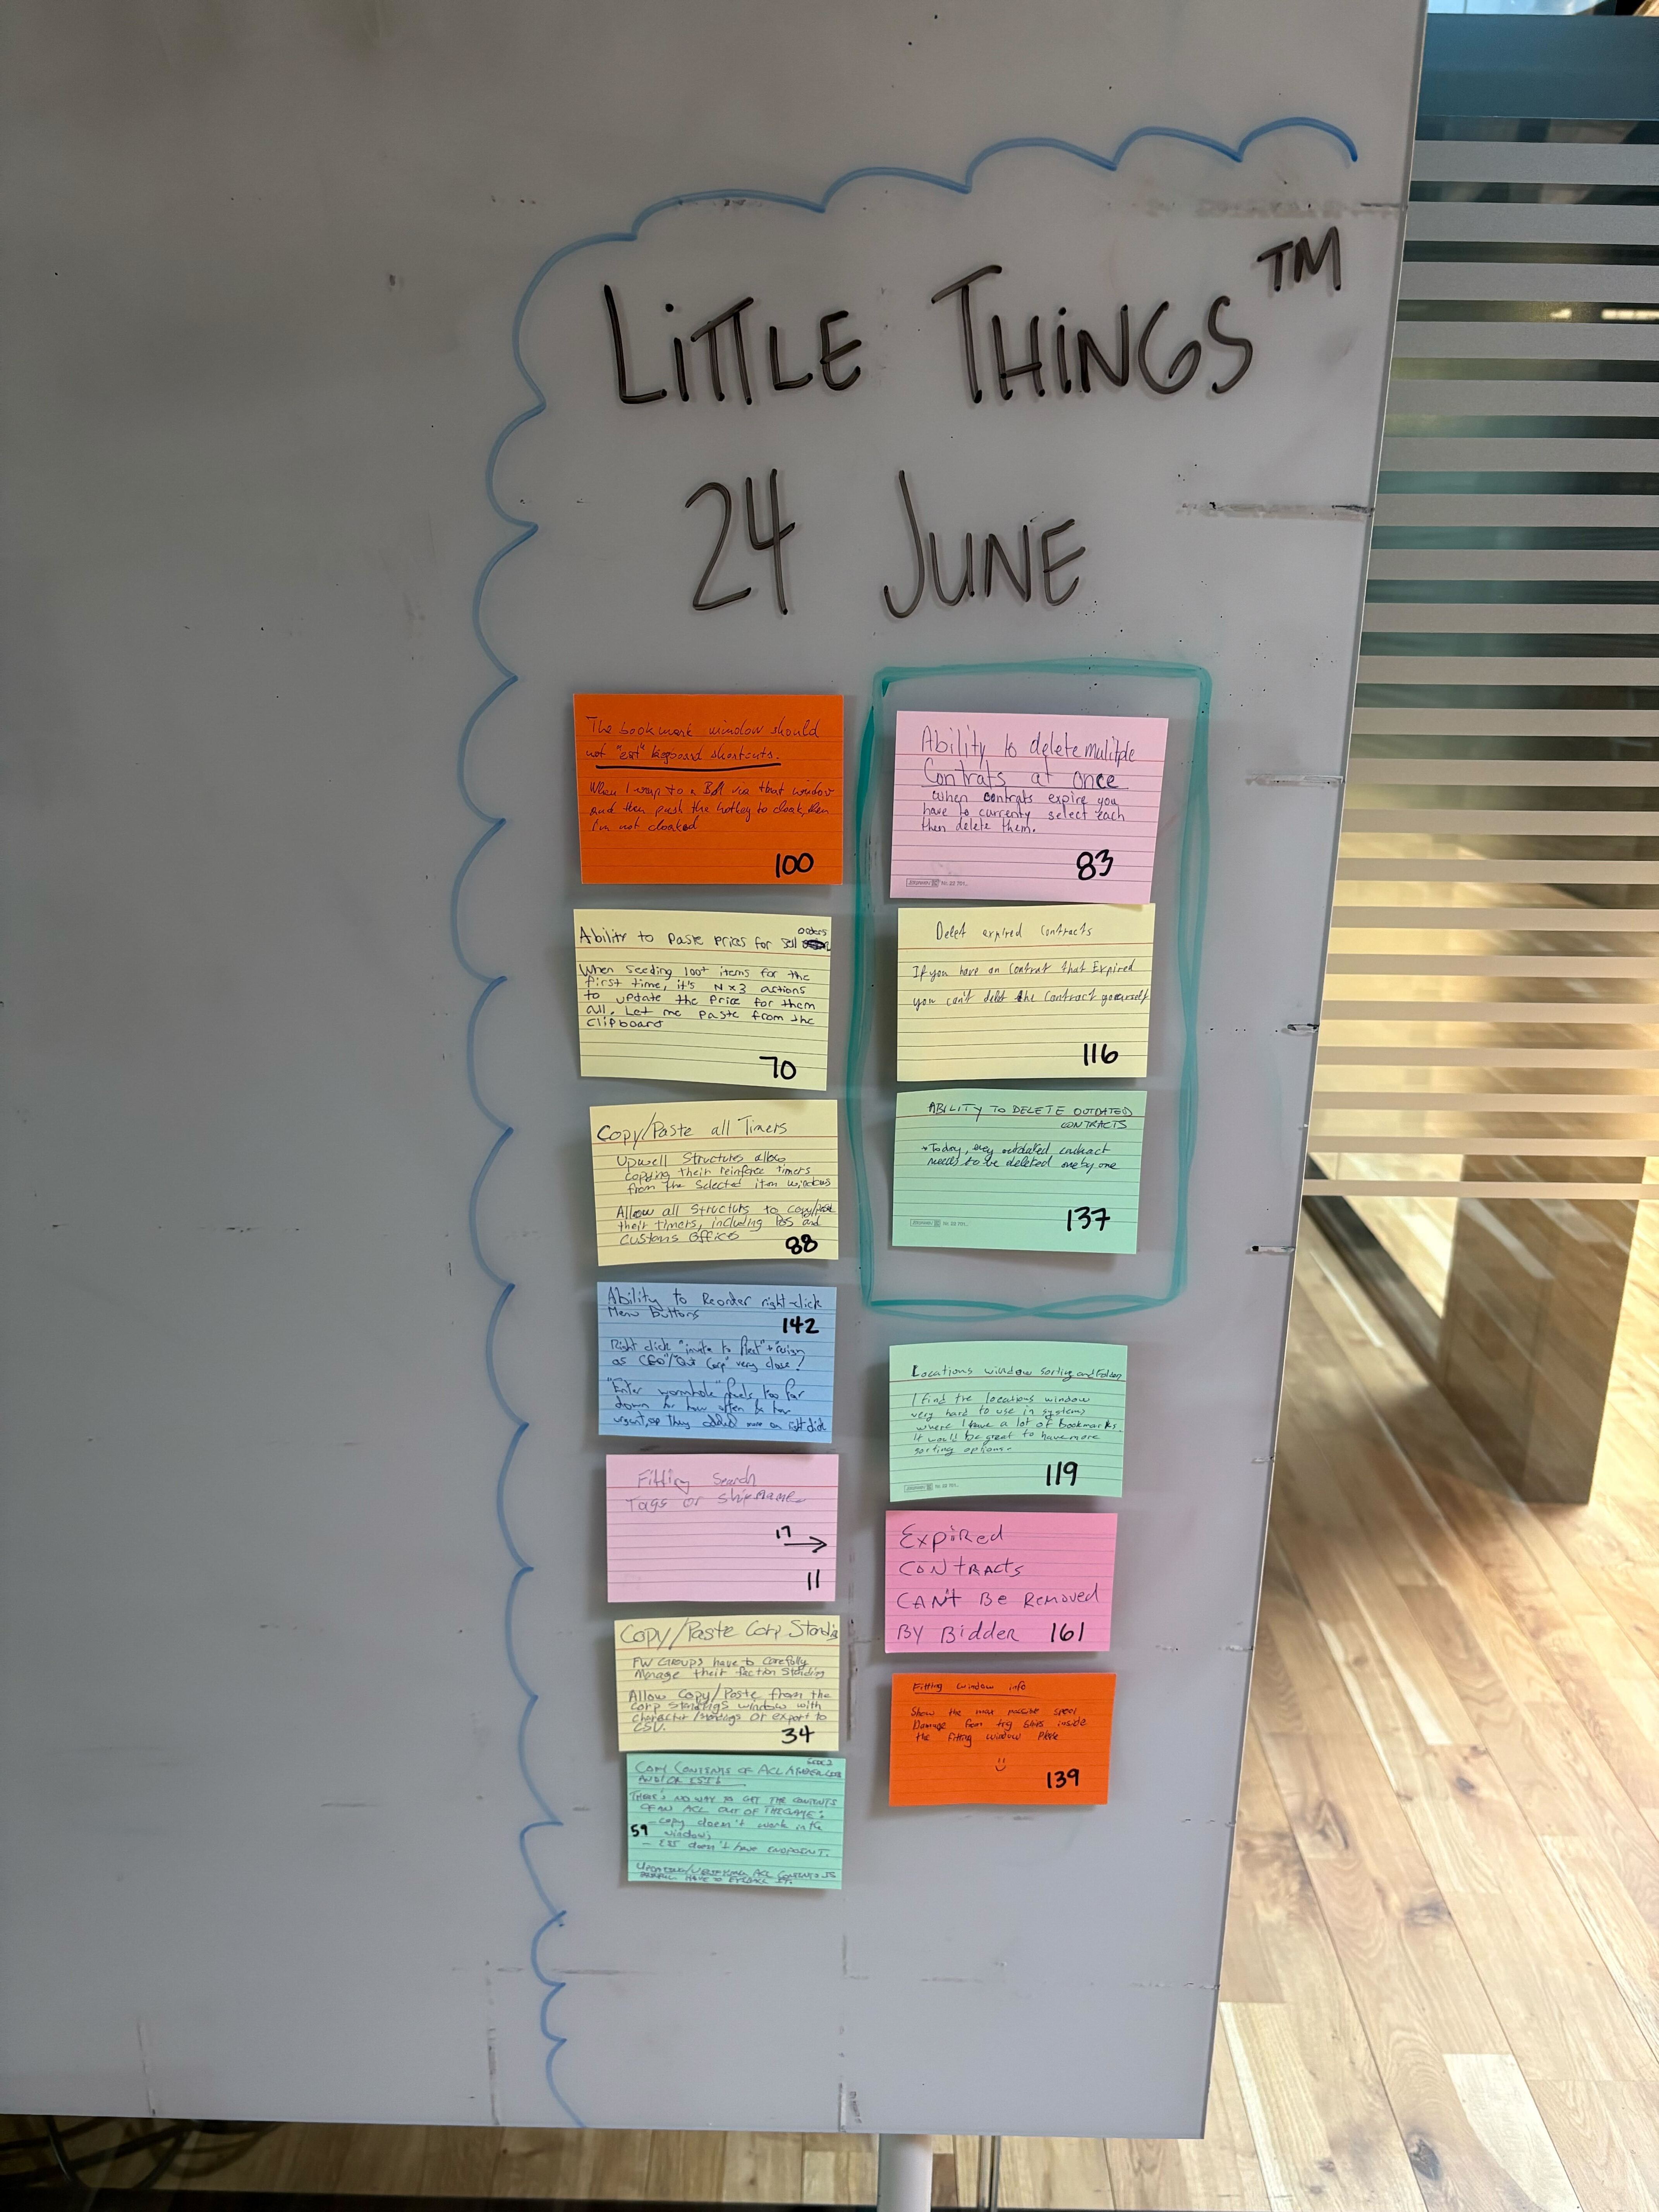 LiTTLE THiNGS™
24 JUNE
The bookmark window should
not "eat" keyboard shortcuts.
When I warp to a BM via that window
and then push the hotkey to cloak, then
I'm not cloaked
100
Ability to paste prices for sell orders
When seeding 100+ items for the
first time, it's N x 3 actions
to update the price for them
all. Let me paste from the
clipboard
70
Copy/Paste all Timers
Upwell Structures allow
copying their reinforce timers
from the selected item windows
Allow all Structurs to copy/paste
their timers, including POS and
Customs Offices
88
Ability to Reorder right-click
Menu Buttons
142
Right click "invite to fleet" + resign
as CEO"/"Quit Corp" very close!
"Enter wormhole" feels too far
down for how often &
urgent, as they added more on right click
Fitting Search
Tags or shipname
17 →
11
Copy/Paste Corp Standings
FW GROUPS have to carefully
Manage their faction standing
Allow Copy/Paste from the
corp standings window with
character/standings or export to
CSV.
34
COPY CONTENTS OF ACL
AND/OR ESI
THERE'S NO WAY TO GET THE CONTENTS
OF AN ACL OUT OF THE GAME:
- copy doesn't work in the
59 window
- ESI doesn't have ENDPOINT.
ACL CONTENTS IS
Ability to delete mulitple
Contrats at once
When contrats expire you
have to currenty select each
then delete them.
83
Delet expired contracts
If you have an contrat that Expired
you can't delet the contract yourself
116
ABILITY TO DELETE OUTDATED
CONTRACTS
→ Today, every outdated contract
needs to be deleted one by one
137
Locations window sorting and Folders
I find the locations window
very hard to use in systems
where I have a lot of bookmarks.
It would be great to have more
sorting options.
119
Expired
CONTRACTS
CAN'T BE Removed
BY Bidder 161
Fitting window info
Show the max possible spool
Damage from trig ships inside
the fitting window please
139